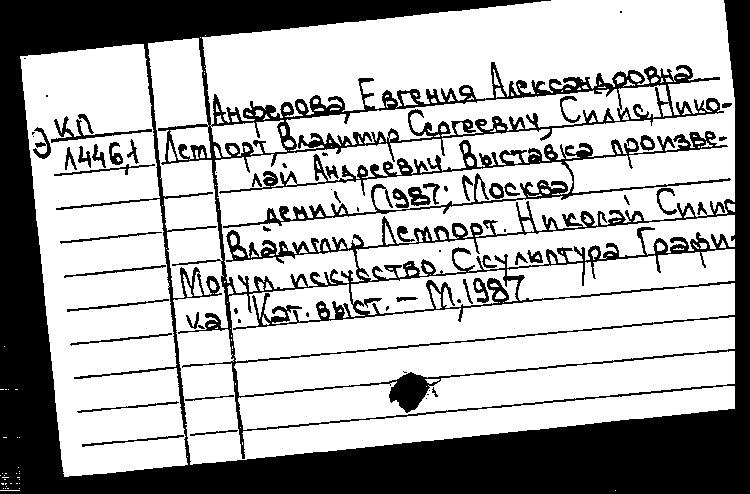 Анферова, Евгения Александровна
Э КП
Л446,1 Лемпорт, Владимир Сергеевич, Силис, Нико-
лай Андреевич. Выставка произве-
дений. (1987; Москва)
Владимир Лемпорт. Николай Силис
Монум. искусство. Скульптура. Графи-
ка : Кат. выст. – М., 1987.